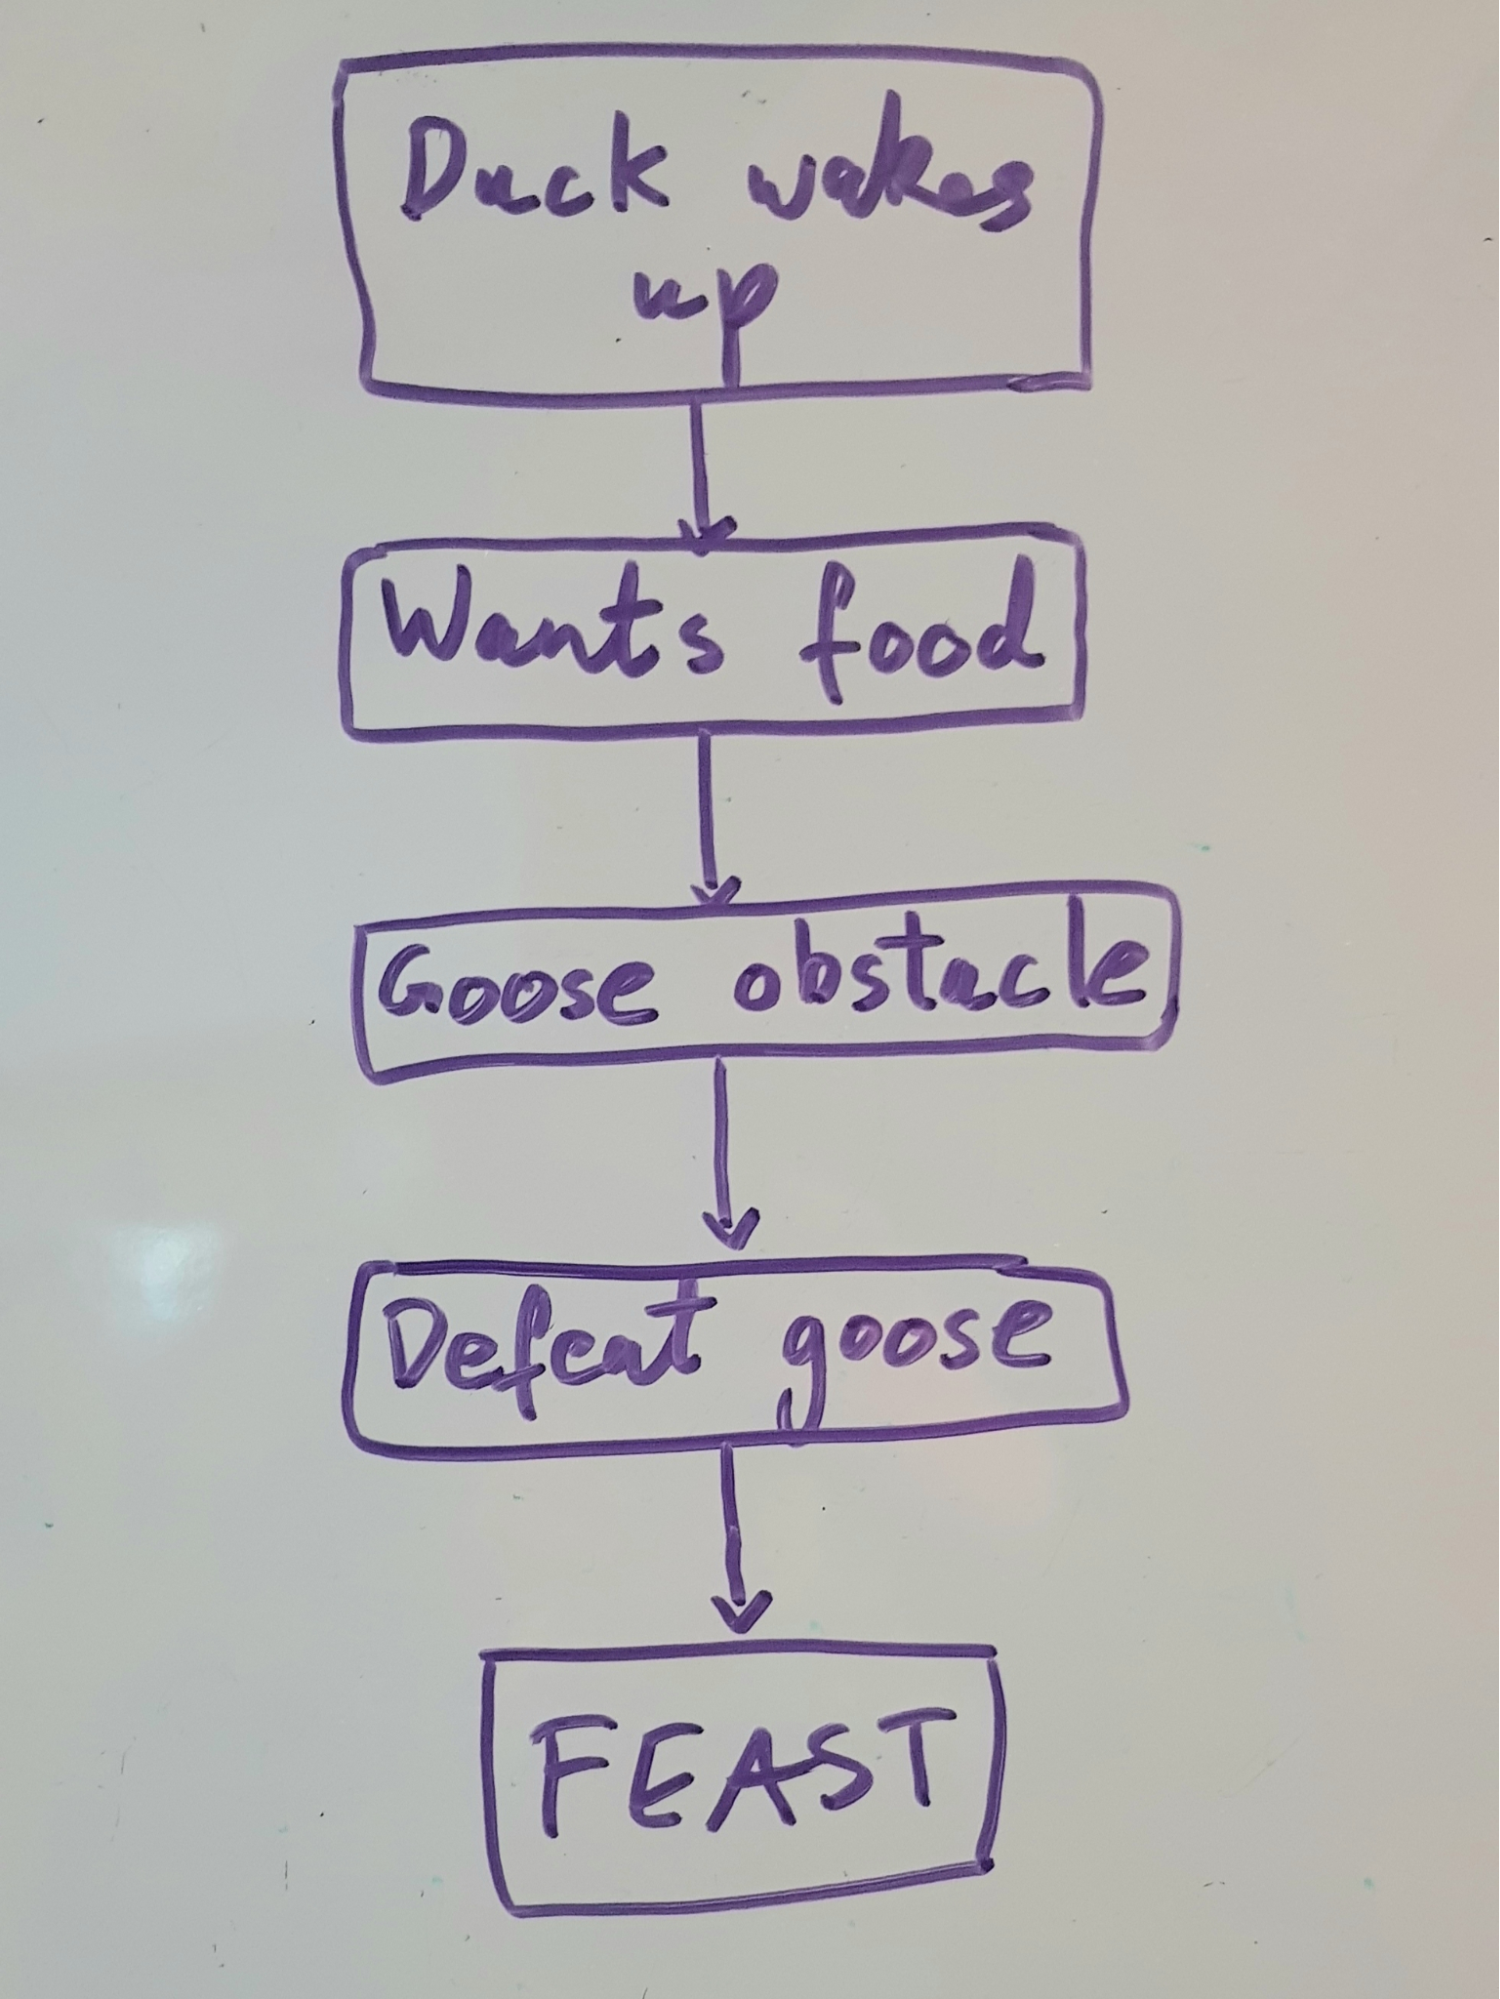 Duck wakes
up
Wants food
Goose obstacle
Defeat goose
FEAST